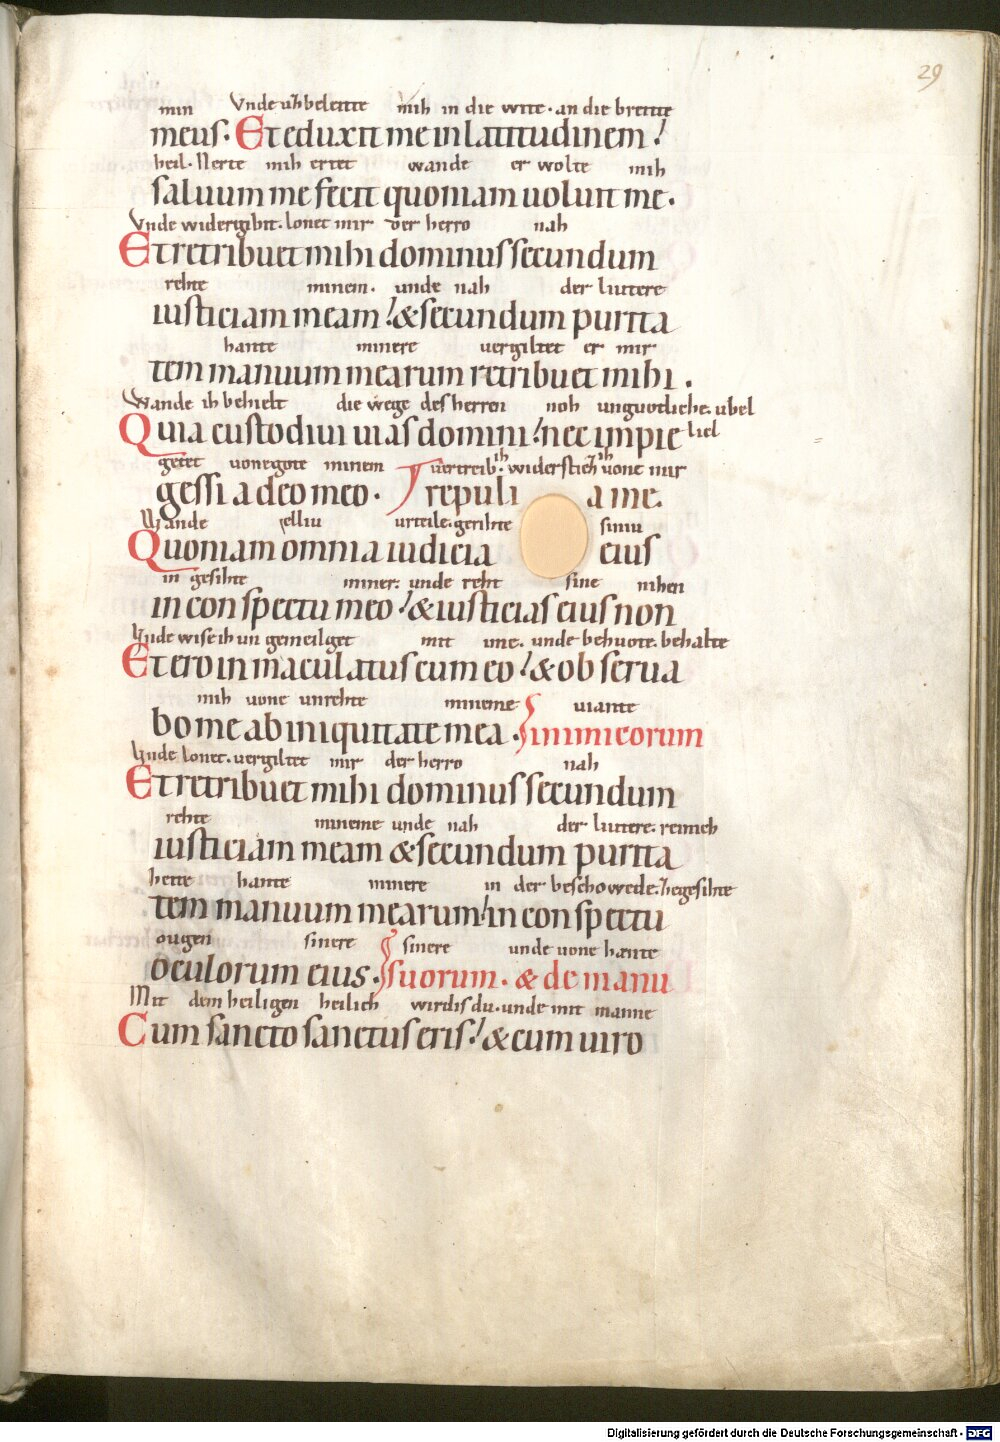 29
min Vnde uzbeleitte mih in die wite. an die breitte
meus. Et eduxit me in latitudinem!
heil. Nerte mih ertet wande er wolte mih
saluum me fecit quoniam uoluit me.
Vnde widergibit. lonet mir der herro nah
Et retribuet mihi dominus secundum
rehte minem. unde nah der luttere
iusticiam meam! & secundum purita
hante minere uergiltet er mir
tem manuum mearum retribuet mihi.
Wande ih behielt die wege des herren noh unguotliche. ubel
Quia custodiui uias domini! nec impie liel
getet uonegote minem uertreib ih. widerstiez ih uone mir
gessi a deo meo. repuli a me.
Wande elliu urteile. gerihte siniu
Quoniam omnia iudicia eius
in gesihte miner. unde reht sine nihen
in conspectu meo! & iusticias eius non
Unde wise ih un gemeilget mit ime. unde behuote. behalte
Et ero inmaculatus cum eo! & obserua
mih uone unrehte mineme uiante
bo me ab iniquitate mea. inimicorum
Unde lonet. uergiltet mir der herro nah
Et retribuet mihi dominus secundum
rehte mineme unde nah der luttere. reinich
iusticiam meam & secundum purita
heite hante minere in der beschowede. zegesihte
tem manuum mearum! in conspectu
ougen sinere sinere unde uone hante
oculorum eius. suorum. & de manu
Mit dem heiligen heilich wirdis du. unde mit manne
Cum sancto sanctus eris! & cum uiro
Digitalisierung gefördert durch die Deutsche Forschungsgemeinschaft - DFG